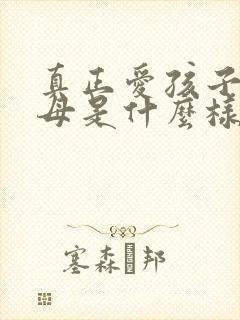 真正愛孩子
母是什麼樣
塞森�邦